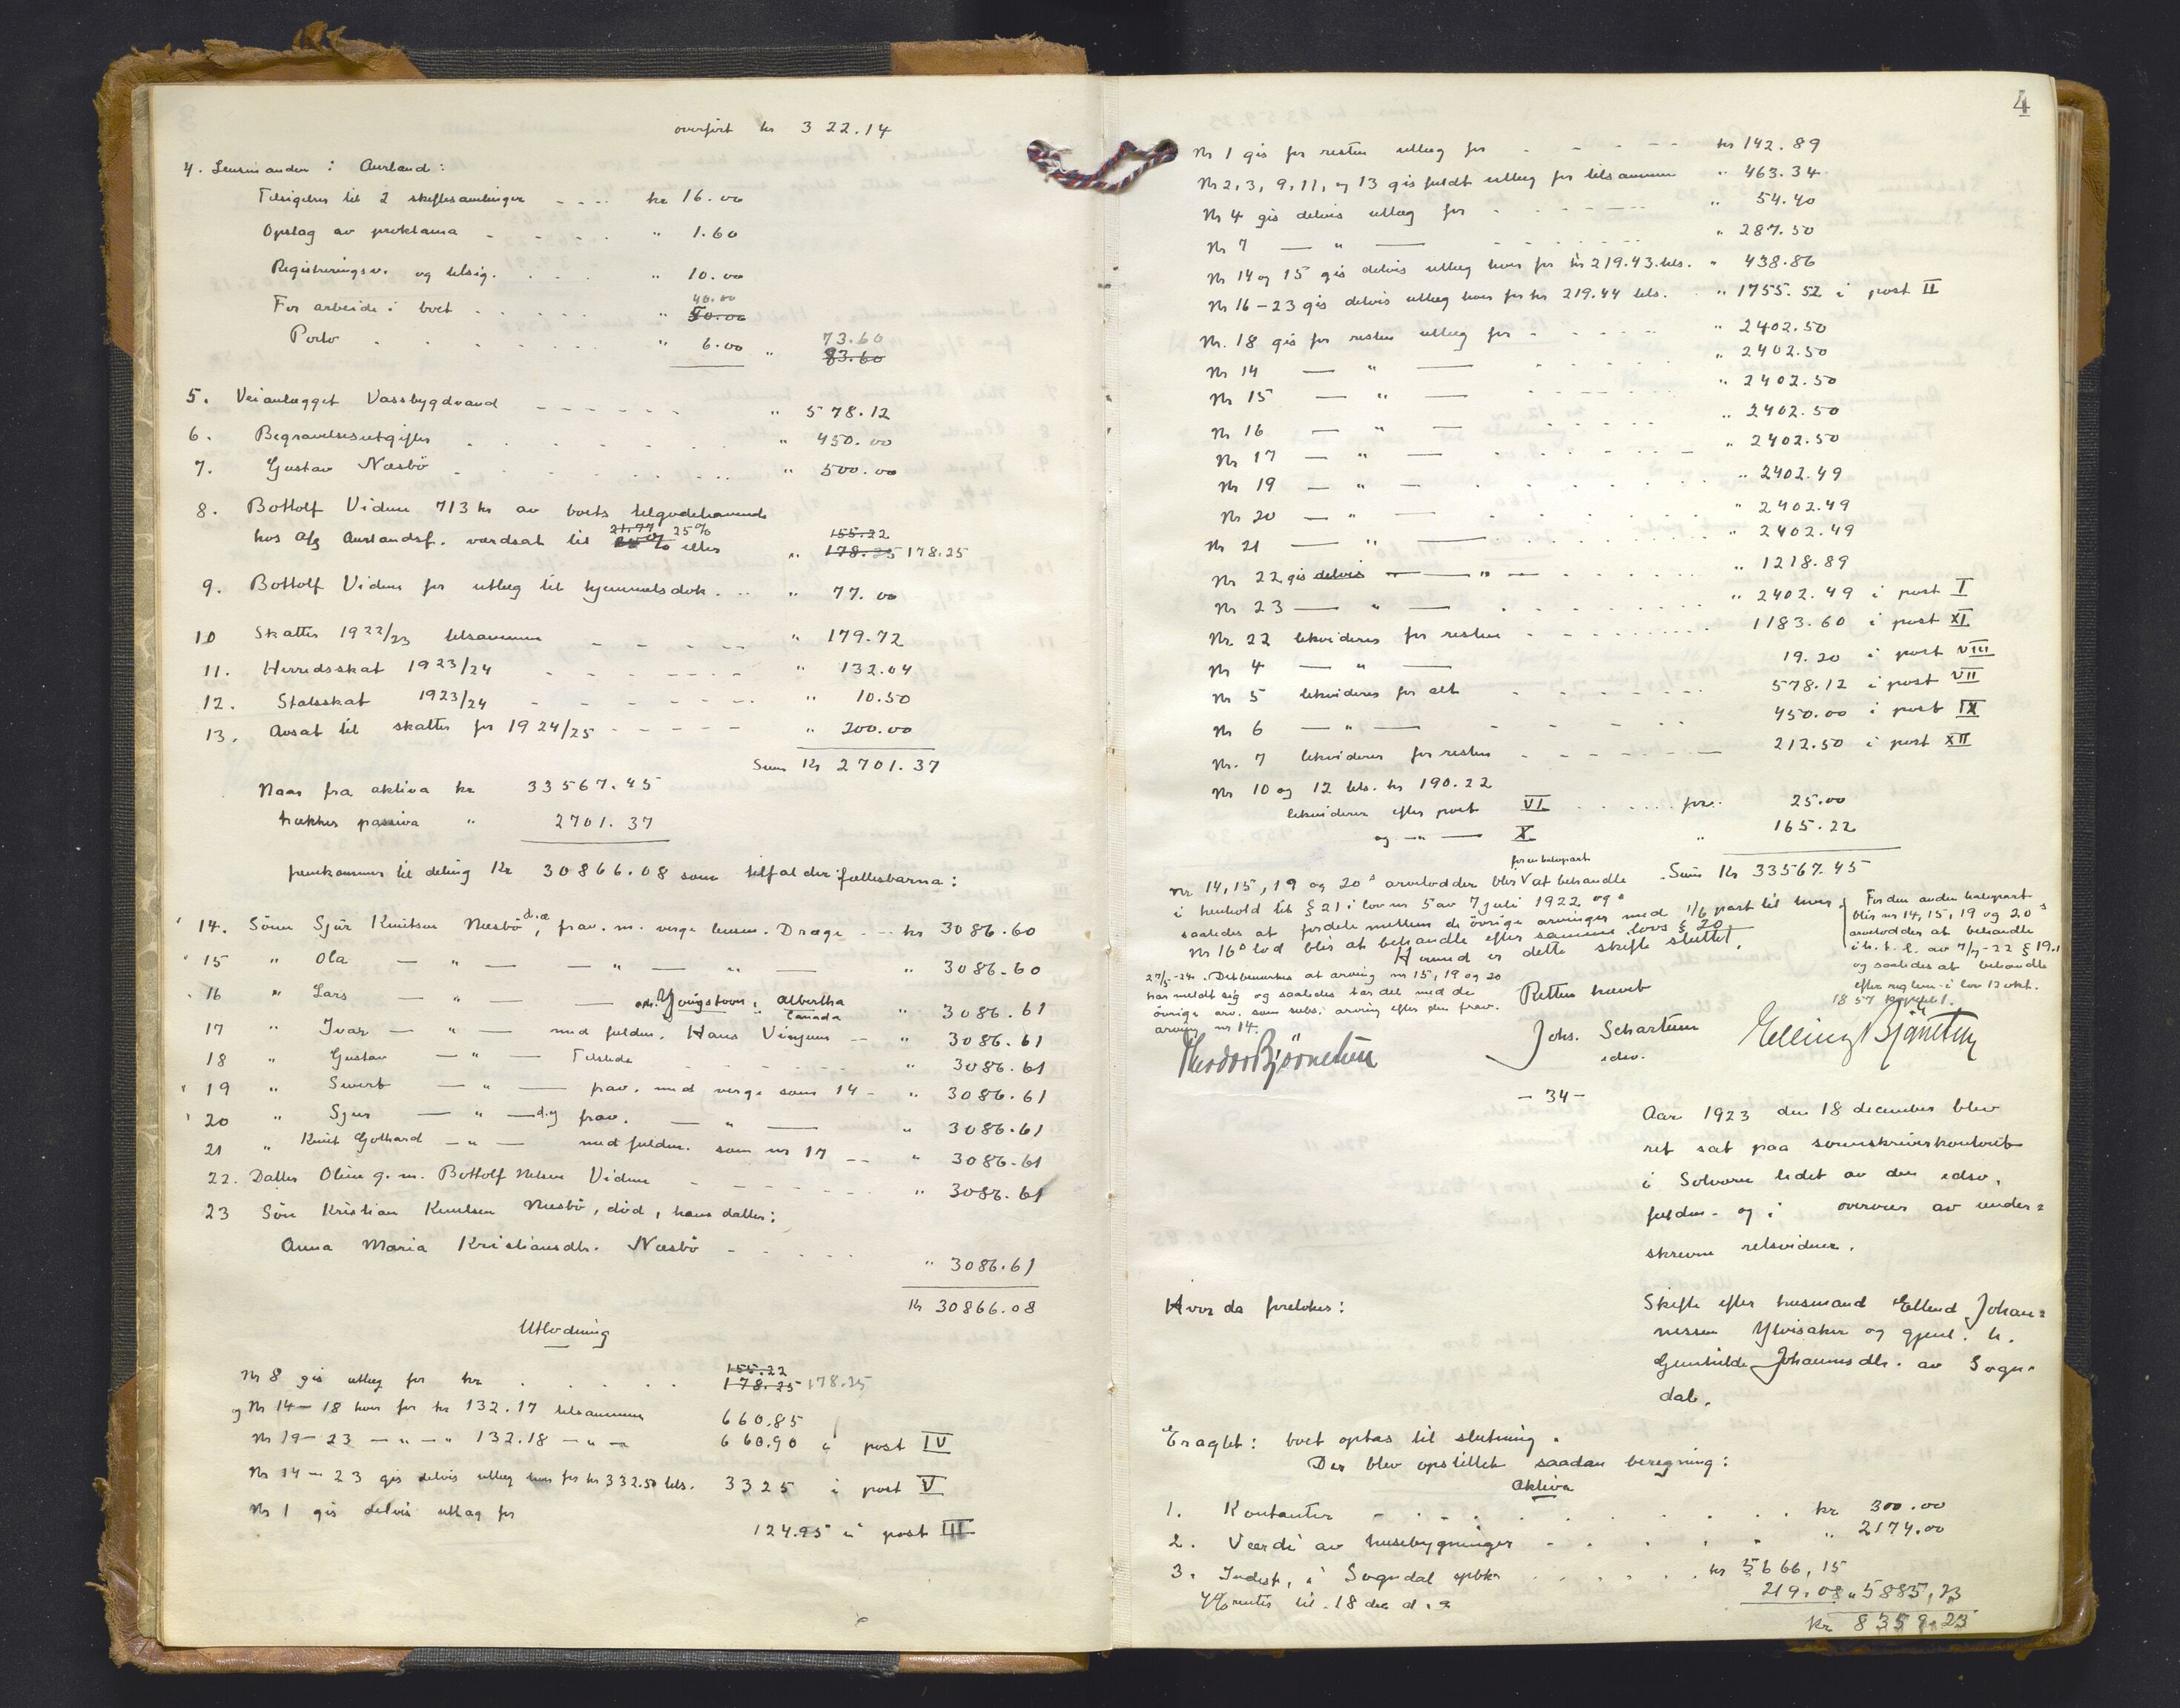 overført kr 322.14
4. Lensmanden i Aurland:
Tilsigelser til 2 skiftesamlinger - - - - kr 16.00
Opslag av proklama - - - - - " 1.60
Registreringsv. og tilsig. . . . . " 10.00
40.00
For arbeide i boet . . . . . . " 50.00
73.60
Porto . . . . . . . . " 6.00 " 83.60
5. Veianlægget Vassbygdvand - - - - - - " 578.12
6. Begravelsesutgifter . . . . . . " 450.00
7. Gustav Næsbö . . . . . . . . " 500.00
8. Bottolf Vidme 713 kr av boets tilgodehavende
21.77 25% 155.22
hos A/S Aurlandsf. værdsat til 25% eller " 178.25 178.25
9. Bottolf Vidme for utlæg til hjemmelsdok. . . " 77.00
10 Skatter 1922/23 tilsammen - - - - - " 179.72
11. Herredsskat 1923/24 - - - - - - - " 132.04
12. Statsskat 1923/24 - - - - - - - " 10.50
13. Avsat til skatter for 1924/25 - - - - - " 200.00
Sum Kr 2701.37
Naar fra aktiva kr 33567.45
trækkes passiva " 2701.37
fremkommer til deling Kr 30866.08 som tilfalder fællesbarna:
14. Sönn Sjur Knutsen Næsbö d.æ, frav. m. verge lensm. Drage - - kr 3086.60
15 " Ola — " — — " — " — " 3086.60
16 " Lars — " — — adr. Youngstown, Albertha
Canada " 3086.61
17 " Ivar — " — med fuldm. Hans Vinjum - - " 3086.61
18 " Gustav — " — Tilstede " 3086.61
19 " Sivert — " — frav. med verge som 14 - " 3086.61
20 " Sjur — " — d.y frav. — " — " 3086.61
21 " Knut Gothard — " — med fuldm. som nr 17 - - " 3086.61
22. Datter Oline g. m. Bottolf Nilsen Vidme - - - - - - - " 3086.61
23 Sön Kristian Knutsen Næsbö, död, hans datter:
Anna Maria Kristiansdtr. Næsbö - - - - -
" 3086.61
Kr 30866.08
Utlodning
155.22
Nr 8 gis utlæg for kr . . . . . 178.25 178.25
og Nr 14 — 18 hver for kr 132.17 tilsammen 660.85
Nr 19 — 23 — " — " 132.18 — " — 660.90 i post IV
Nr 14 — 23 gis delvis utlæg hver for kr 332.50 tils. 3325 i post V
Nr 1 gis delvis utlæg for
124.95 i post III
4
Nr 1 gis for resten utlæg for - - - - - kr 142.89
Nr 2, 3, 9, 11, og 13 gis fuldt utlæg for tilsammen " 463.34
Nr 4 gis delvis utlæg for - - - - - - " 54.40
Nr 7 — " — - - - - - - " 287.50
Nr 14 og 15 gis delvis utlæg hver for kr 219.43 tils. " 438.86
Nr 16 — 23 gis delvis utlæg hver for kr 219.44 tils. " 1755.52 i post II
Nr. 18 gis for resten utlæg for - - - - - " 2402.50
Nr 14 — " — " 2402.50
Nr 15 — " — " 2402.50
Nr 16 — " — " 2402.50
Nr 17 — " — " 2402.50
Nr 19 — " — " 2402.49
Nr 20 — " — " 2402.49
Nr 21 — " — " 2402.49
Nr 22 gis delvis — " — " 1218.89
Nr 23 — " — " 2402.49 i post I
Nr. 22 likvideres for resten - - - - - 1183.60 i post XI
Nr 4 — " — 19.20 i post VIII
Nr 5 likvideres for alt - - - - - 578.12 i post VII
Nr 6 — " — - - - - - 450.00 i post IX
Nr. 7 likvideres for resten - - - - - 212.50 i post XII
Nr 10 og 12 tils. kr 190.22
likvideres efter post VI . . . . . for. 25.00
og — " — X " 165.22
Sum Kr 33567.45
for en halvpart
Nr 14, 15, 19 og 20s arvelodder blir V at behandle
i henhold til § 21 i lov nr 5 av 7 juli 1922 og
saaledes at fordele mellem de övrige arvinger med 1/6 part til hver
Nr 16s lod blir at behandle efter samme lovs § 20.
Hermed er dette skifte sluttet.
For den anden halvpart
blir nr 14, 15, 19 og 20s
arvelodder at behandle
i h. t. l. av 7/7-22 § 19.1
og saaledes at behandle
efter reglene i lov 12 okt.
1857 kapitel 1.
27/5-24. Det bemerkes at arving nr 15, 19 og 20
har meldt sig og saaledes tar del med de
övrige arv. som subs. arving efter den frav.
arving nr 14.
Retten hævet
Johs. Schartum
edsv.
Elling Bjørnetun
Theodor Bjørnetun
- 34 -
Aar 1923 den 18 december blev
ret sat paa sorenskriverkontoret
i Solvorn ledet av den edsv.
fuldm. og i overvær av under=
skrevne retsvidner.
Hvor da foretokes:
Skifte efter husmand Ellend Johan=
nessen Ylvisaker og gjenl. h.
Gunhilde Johannesdtr. av Sogn=
dal.
Eragtet: boet optas til slutning.
Der blev opstillet saadan beregning:
Aktiva
1. Kontanter - . . . . . . . . . kr 300.00
2. Værdi av husebygninger . . . . . " 2174.00
3. Indest. i Sogndal spbk. . . . . . kr 5666,15
4% renter til 18 des d. a 219.08 " 5885,23
Kr 8359.23